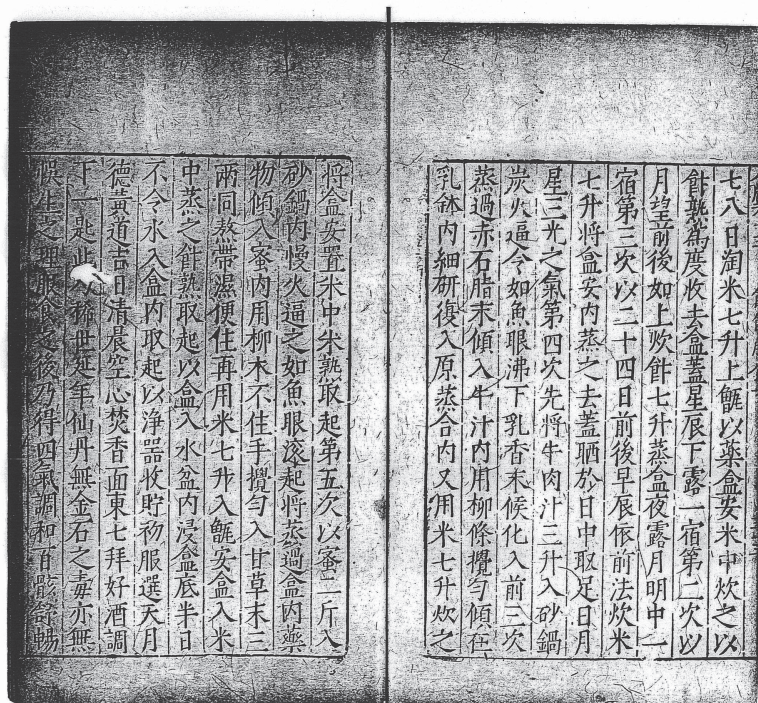 七八日淘米七升上甑以藥盒安米中炊之以
飰熟爲度收去盒蓋星辰下露一宿第二次以
月望前後如上炊飰七升蒸盒夜露月明中一
宿第三次以二十四日前後早辰依前法炊米
七升將盒安內蒸之去蓋晒於日中取足日月
星三光之氣第四次先將牛肉汁三升入砂鍋
炭火逼令如魚眼沸下乳香末候化入前三次
蒸過赤石脂末傾入牛汁內用柳條攪勻傾在
乳鉢內細研復入原蒸合內又用米七升炊之
將盒安置米中米熟取起第五次以蜜二斤入
砂鍋內慢火逼之如魚眼滾起將蒸過盒內藥
物傾入蜜內用柳木不住手攪勻入甘草末三
兩同熬帶濕便住再用米七升入甑安盒入米
中蒸之飰熟取起以盒入水盆內浸盒底半日
不令水入盒內取起以淨器收貯初服選天月
德黃道吉日清晨空心焚香面東七拜好酒調
下一匙此乃稀世延年仙丹無金石之毒亦無
悞生之理服食之後乃得四氣調和百骸舒暢